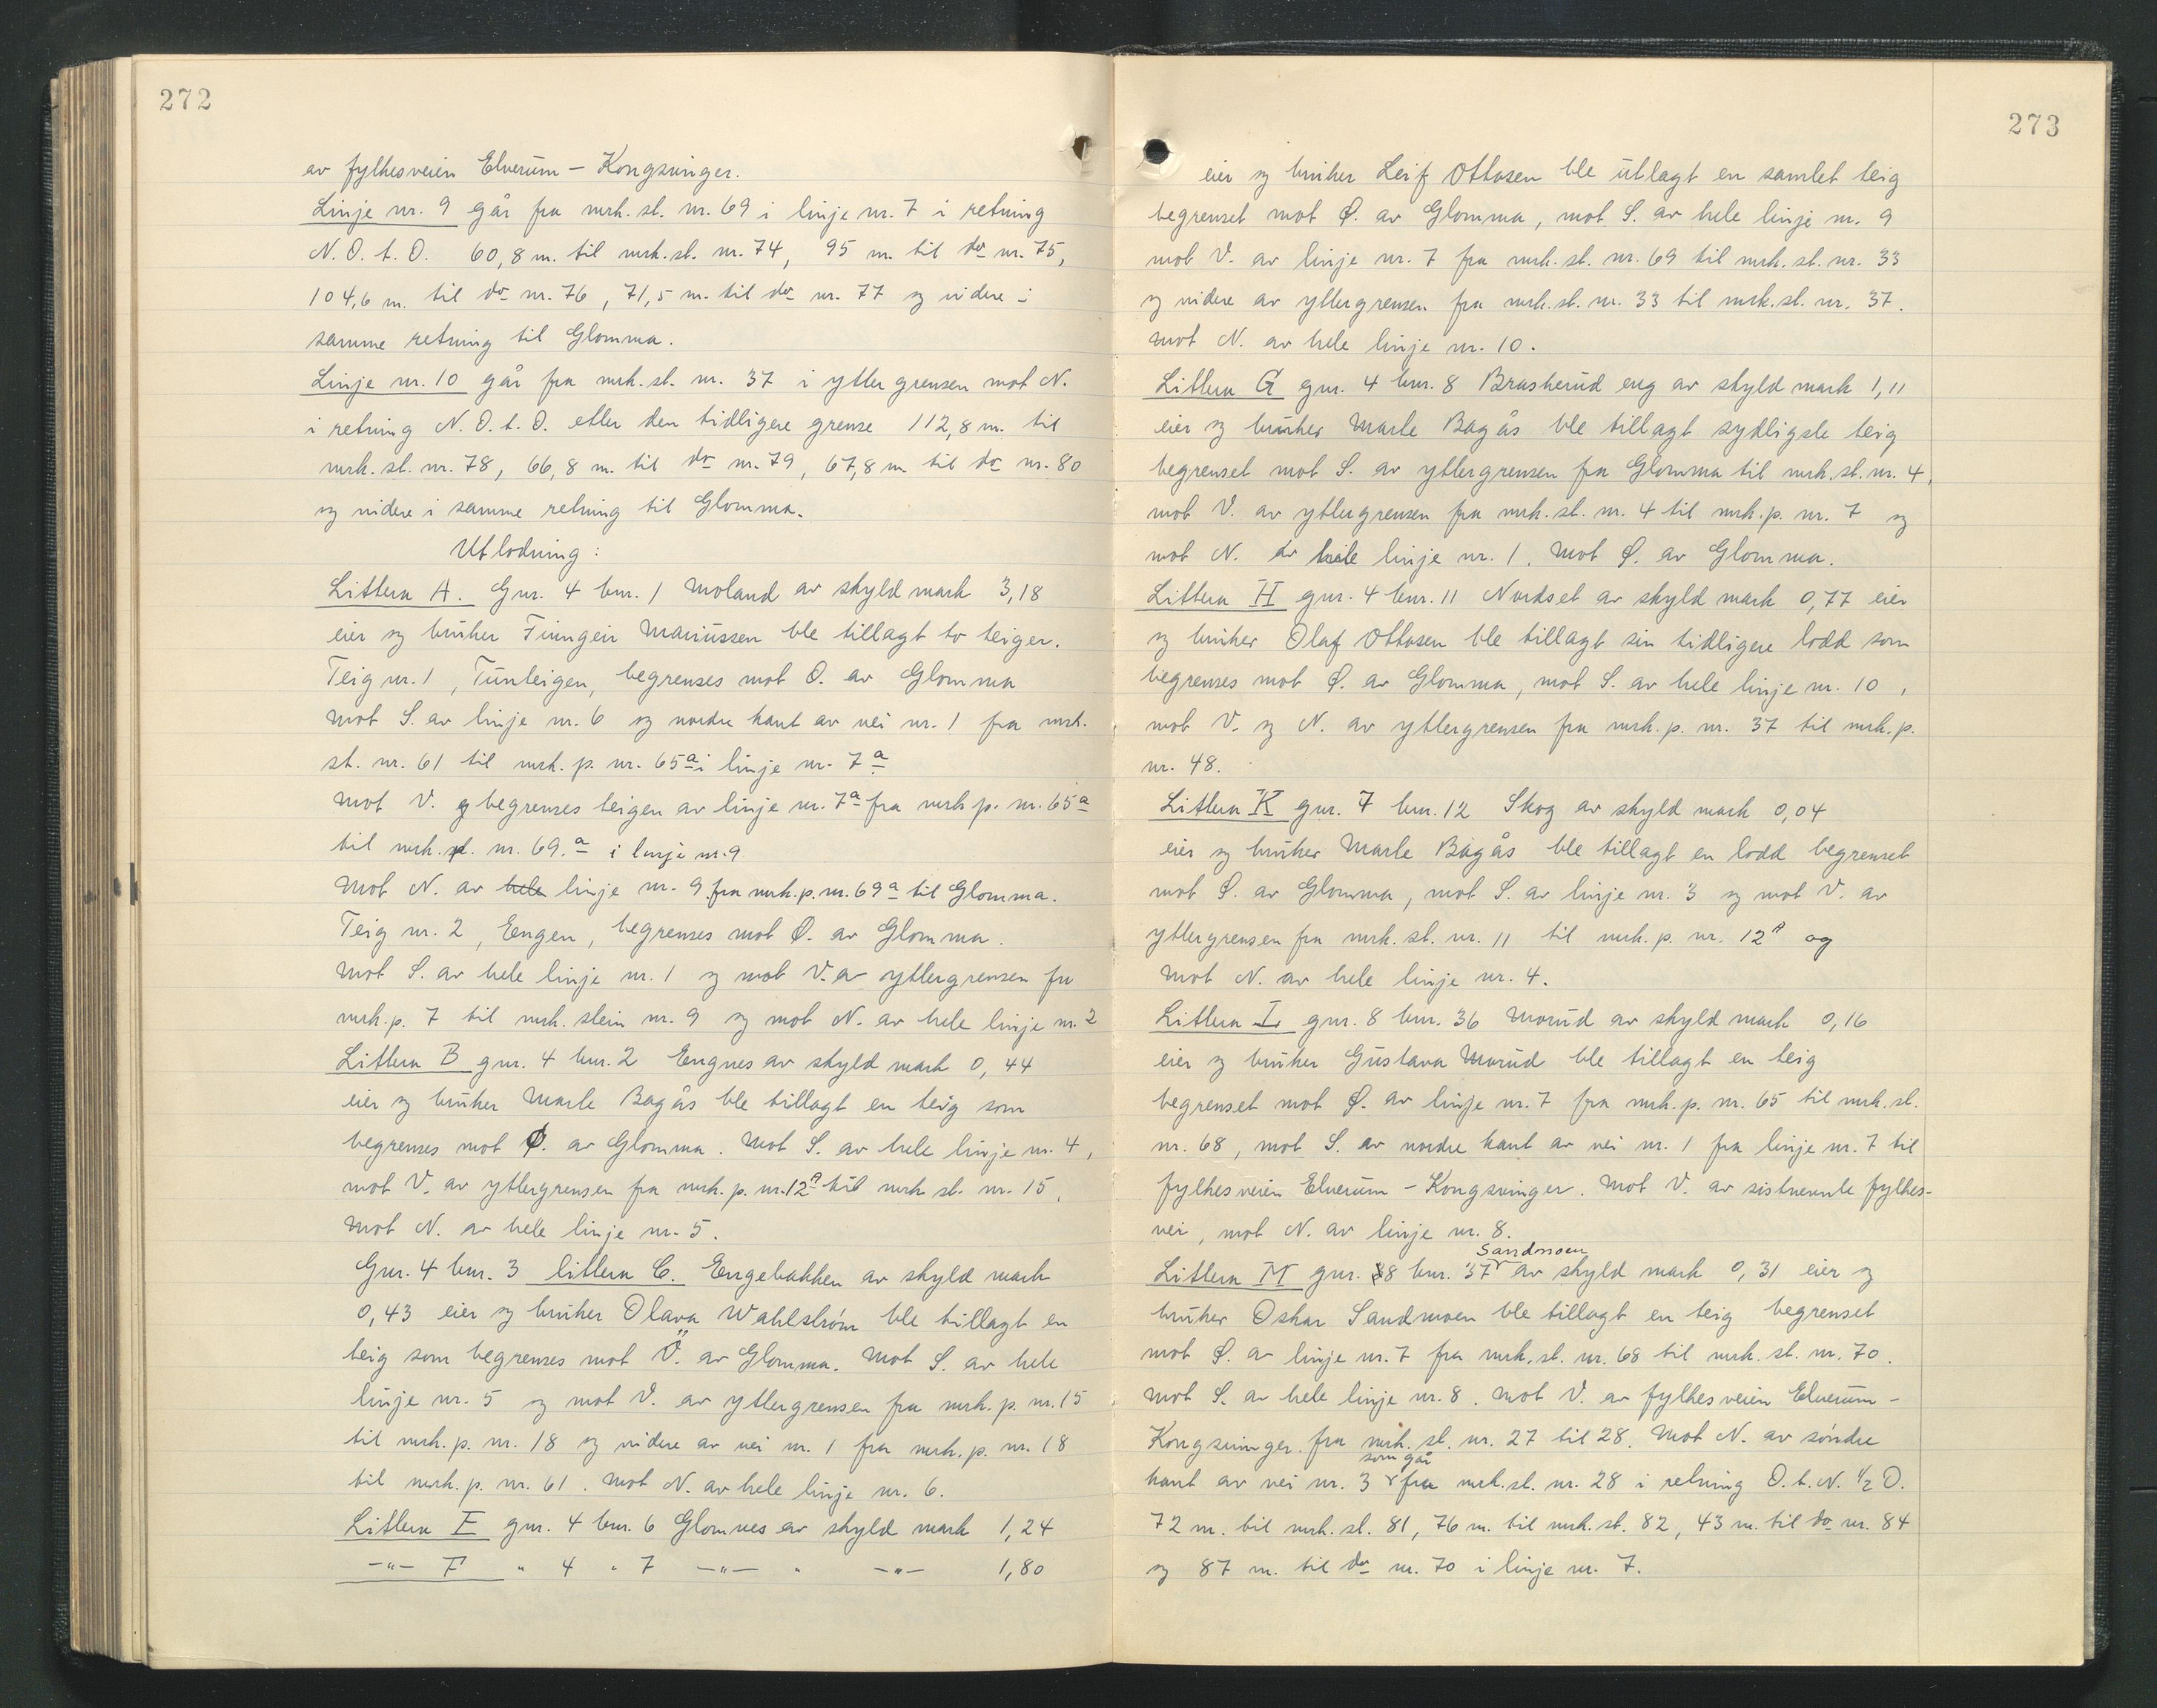 272
av fylkesveien Elverum - Kongsvinger.
Linje nr. 9 går fra mrk. st. nr. 69 i linje nr. 7 i retning
N. O. t. O. 60,8 m. til mrk. st. nr. 74, 95 m. til do nr. 75,
104,6 m. til do nr. 76, 71,5 m. til do nr. 77 og videre i
samme retning til Glomma.
Linje nr. 10 går fra mrk. st. nr. 37 i ytter grensen mot N.
i retning N. O. t. O. etter den tidligere grense 112,8 m. til
mrk. st. nr. 78, 66,8 m. til do nr. 79, 67,8 m. til do nr. 80
og videre i samme retning til Glomma.
Utlodning:
Littera A. Gnr. 4 bnr. 1 Moland av skyld mark 3,18
eier og bruker Finngeir Mariussen ble tillagt to teiger.
Teig nr. 1, Tunteigen, begrenses mot O. av Glomma
mot S. av linje nr. 6 og nordre kant av vei nr. 1 fra mrk.
st. nr. 61 til mrk. p. nr. 65a i linje nr. 7a
mot V. begrenses teigen av linje nr. 7a fra mrk. p. nr. 65a
til mrk. p. nr. 69.a i linje nr. 9
Mot N. av hele linje nr. 9 fra mrk. p. nr. 69a til Glomma.
Teig nr. 2, Eengen, begrenses mot Ø. av Glomma.
Mot S. av hele linje nr. 1 og mot V. av yttergrensen fra
mrk. p. 7 til mrk. stein nr. 9 og mot N. av hele linje nr. 2
Littera B gnr. 4 bnr. 2 Engnes av skyld mark 0,44
eier og bruker Marte Bagås ble tillagt en teig som
begrenses mot Ø. av Glomma. Mot S. av hele linje nr. 4,
mot V. av yttergrensen fra mrk. p. nr. 12A til mrk st. nr. 15,
Mot N. av hele linje nr. 5.
Gnr. 4 bnr. 3 littera C. Engebakken av skyld mark
0,43 eier og bruker Olava Wahlstrøm ble tillagt en
teig som begrenses mot Ö. av Glomma. Mot S. av hele
linje nr. 5 og mot V. av yttergrensen fra mrk. p. nr. 15
til mrk. p. nr. 18 og videre av vei nr. 1 fra mrk. p. nr. 18
til mrk. p. nr. 61. Mot N. av hele linje nr. 6.
Littera E gnr. 4 bnr. 6 Glomnes av skyld mark 1,24
-"- F " 4 " 7 -"- " -"- 1,80
273
eier og bruker Leif Ottosen ble utlagt en samlet teig
begrenset mot Ø. av Glomma, mot S. av hele linje nr. 9
mot V. av linje nr. 7 fra mrk. st. nr. 69 til mrk. st. nr. 33
og videre av yttergrensen fra mrk. st. nr. 33 til mrk. st. nr. 37.
Mot N. av hele linje nr. 10.
Littera G gnr. 4 bnr. 8 Braskerud eng av skyld mark 1,11
eier og bruker Marte Bagås ble tillagt sydligste teig
begrenset mot S. av yttergrensen fra Glomma til mrk. st. nr. 4,
mot V. av yttergrensen fra mrk. st. nr. 4 til mrk. p. nr. 7 og
mot N. av hele linje nr. 1. Mot Ø. av Glomma.
Littera H gnr. 4 bnr. 11 Nordset av skyld mark 0,77 eier
og bruker Olaf Ottosen ble tillagt sin tidligere lodd som
begrenses mot Ø. av Glomma, mot S. av hele linje nr. 10,
mot V. og N. av yttergrensen fra mrk. p. nr. 37 til mrk. p.
nr. 48.
Littera K gnr. 7 bnr. 12 Skog av skyld mark 0,04
eier og bruker Marte Bagås ble tillagt en lodd begrenset
mot Ø. av Glomma, mot S. av linje nr. 3 og mot V. av
yttergrensen fra mrk. st. nr. 11 til mrk. p. nr. 12A og
mot N. av hele linje nr. 4.
Littera L gnr. 8 bnr. 36 Morud av skyld mark 0,16
eier og bruker Gustava Morud ble tillagt en teig
begrenset mot Ø. av linje nr. 7 fra mrk. p. nr. 65 til mrk. st.
nr. 68, mot S. av nordre kant av vei nr. 1 fra linje nr. 7 til
fylkesveien Elverum - Kongsvinger. Mot V. av sistnevnte fylkes-
vei, mot N. av linje nr. 8.
Sandmoen
Littera M gnr. 8 bnr. 37 av skyld mark 0,31 eier og
bruker Oskar Sandmoen ble tillagt en teig begrenset
mot Ø. av linje nr. 7 fra mrk. st. nr. 68 til mrk. st. nr. 70.
Mot S. av hele linje nr. 8. Mot V. av fylkesveien Elverum -
Kongsvinger fra mrk. st. nr. 27 til 28. Mot N. av søndre
som går
kant av vei nr. 3 fra mrk. st. nr. 28 i retning O. t. N. 1/2 O.
72 m. til mrk. st. 81, 76 m. til mrk. st. 82, 43 m. til do nr. 84
og 87 m. til do nr. 70 i linje nr. 7.